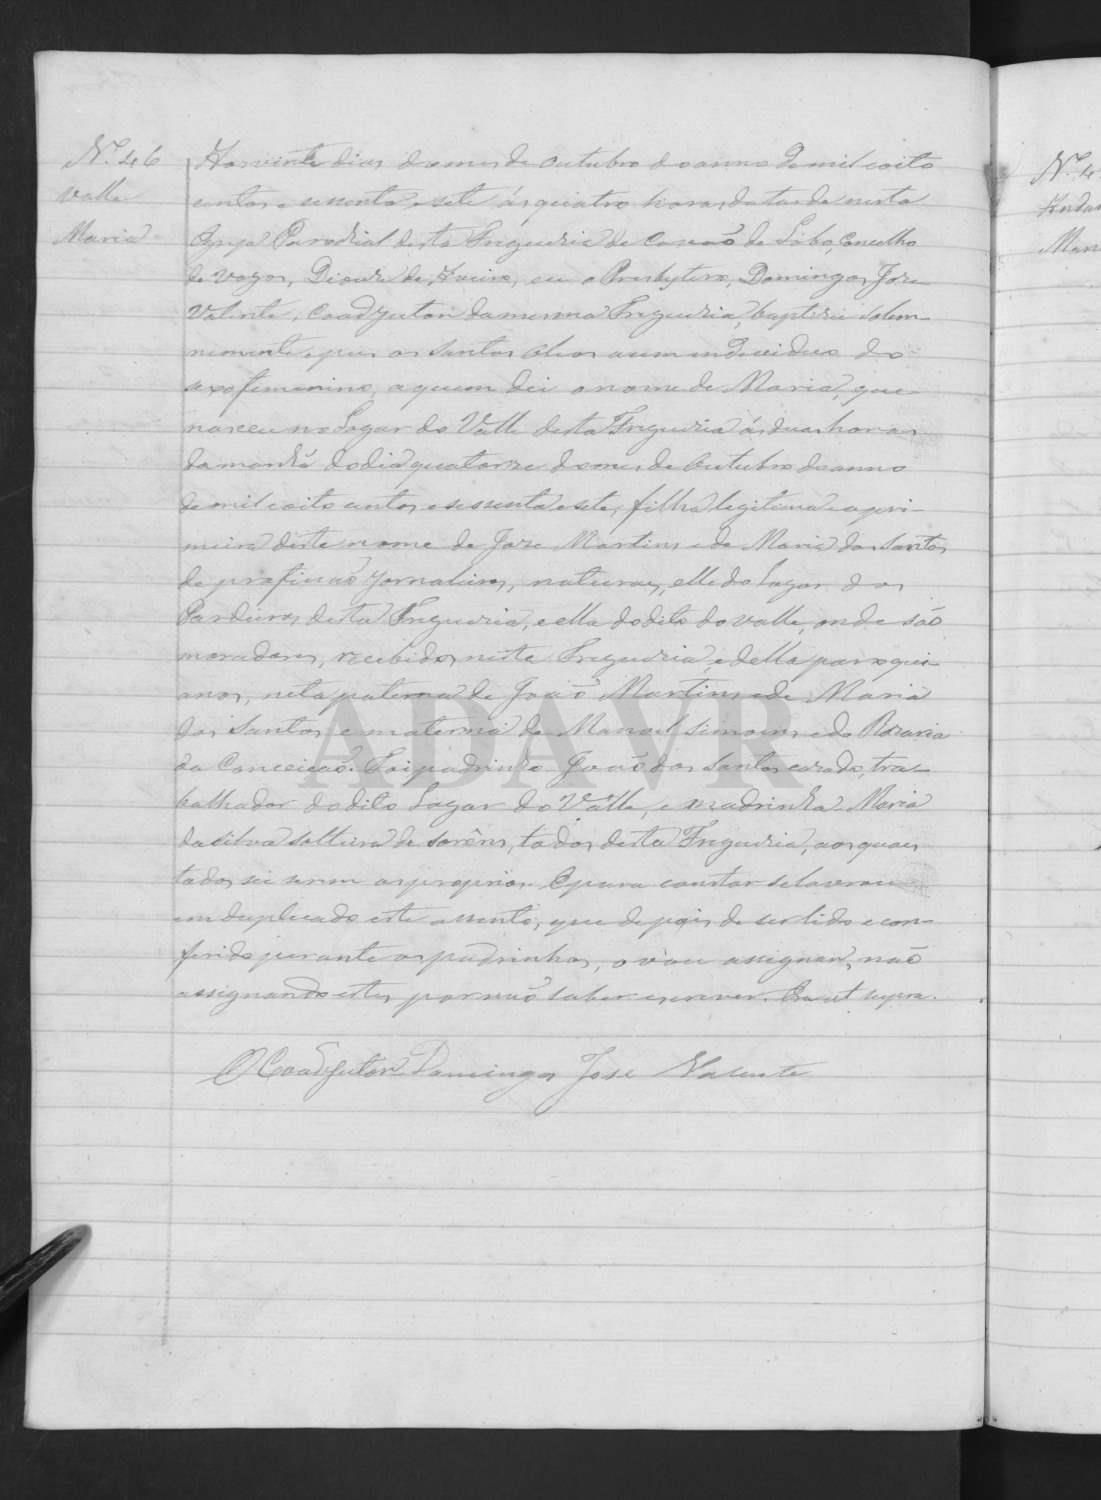 N.º 46
Valle
Maria
Aos vinte dias do mes de Outubro do anno de mil oito
centos e sessenta e sete ás quatro horas da tarde nesta
Igreja Parochial desta Freguezia de Covão do Lobo, Concelho
de Vagos, Diocese de Aveiro, eu o Presbytero, Domingos Jose
Valente, Coadjutor da mesma Freguezia, baptizei solem-
nemente, e puz os santos oleos a um individuo do
sexo femenino, a quem dei o nome de Maria, que
nasceu no Logar do Valle desta Freguezia ás duas horas
da manhã do dia quatorze do mes de Outubro do anno
de mil e oito centos e sessenta e sete, filha legitima e a pri-
meira deste nome de Jose Martins e de Maria dos Santos
de profissão jornaleiros, naturaes, elle do Lugar dos
Pardieiros desta Freguezia, e ella do dito do Valle, onde são
moradores, recebidos nesta Freguezia, e della paroquia-
anos, neta paterna de João Martins e de Maria
dos Santos e materna de Manoel Simoens e de Rozaria
da Conceição. Foi padrinho João dos Santos cazado, tra-
balhador do dito Lugar do Valle, e madrinha Maria
da Silva solteira de Sorêns, todos desta Freguezia, aos quaes
todos sei serem os proprios. E para constar se lavrou
em duplicado este assento, que depois de ser lido e con-
ferido perante os padrinhos, o vou assignar, não
assignando estes por não saber escrever. Era ut supra.
O Coadjutor Domingos Jose Valente
ADAVR
N.º 4
Man